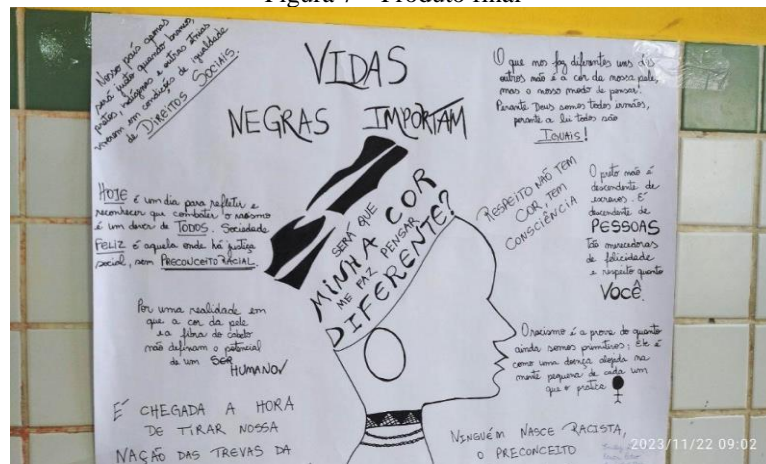 Figura 7 – Produto final
Nosso país apenas
será justo quando brancos,
pretos, indígenas e outras etnias
viverem em condições de igualdade
de DIREITOS SOCIAIS.
VIDAS
NEGRAS IMPORTAM
O que nos faz diferentes uns dos
outros não é a cor da nossa pele,
mas o nosso modo de pensar!
Perante Deus somos todos irmãos,
perante a lei todos são
IGUAIS!
HOJE é um dia para refletir e
reconhecer que combater o racismo
é um dever de TODOS. Sociedade
FELIZ é aquela onde há justiça
social, sem PRECONCEITO RACIAL.
SERÁ QUE
MINHA COR
ME FAZ PENSAR
DIFERENTE?
RESPEITO NÃO TEM
COR, TEM
CONSCIÊNCIA
O preto não é
descendente de
escravos. É
descendente de
PESSOAS
Tão merecedoras
de felicidade
e respeito quanto
VOCÊ.
Por uma realidade em
que a cor da pele
e a fibra do cabelo
não definam o potencial
de um SER
HUMANO
O racismo é a prova do quanto
ainda somos primitivos; Ele é
como uma doença alojada na
mente pequena de cada um
que o pratica
É CHEGADA A HORA
DE TIRAR NOSSA
NAÇÃO DAS TREVAS DA
NINGUÉM NASCE RACISTA,
O PRECONCEITO
2023/11/22 09:02